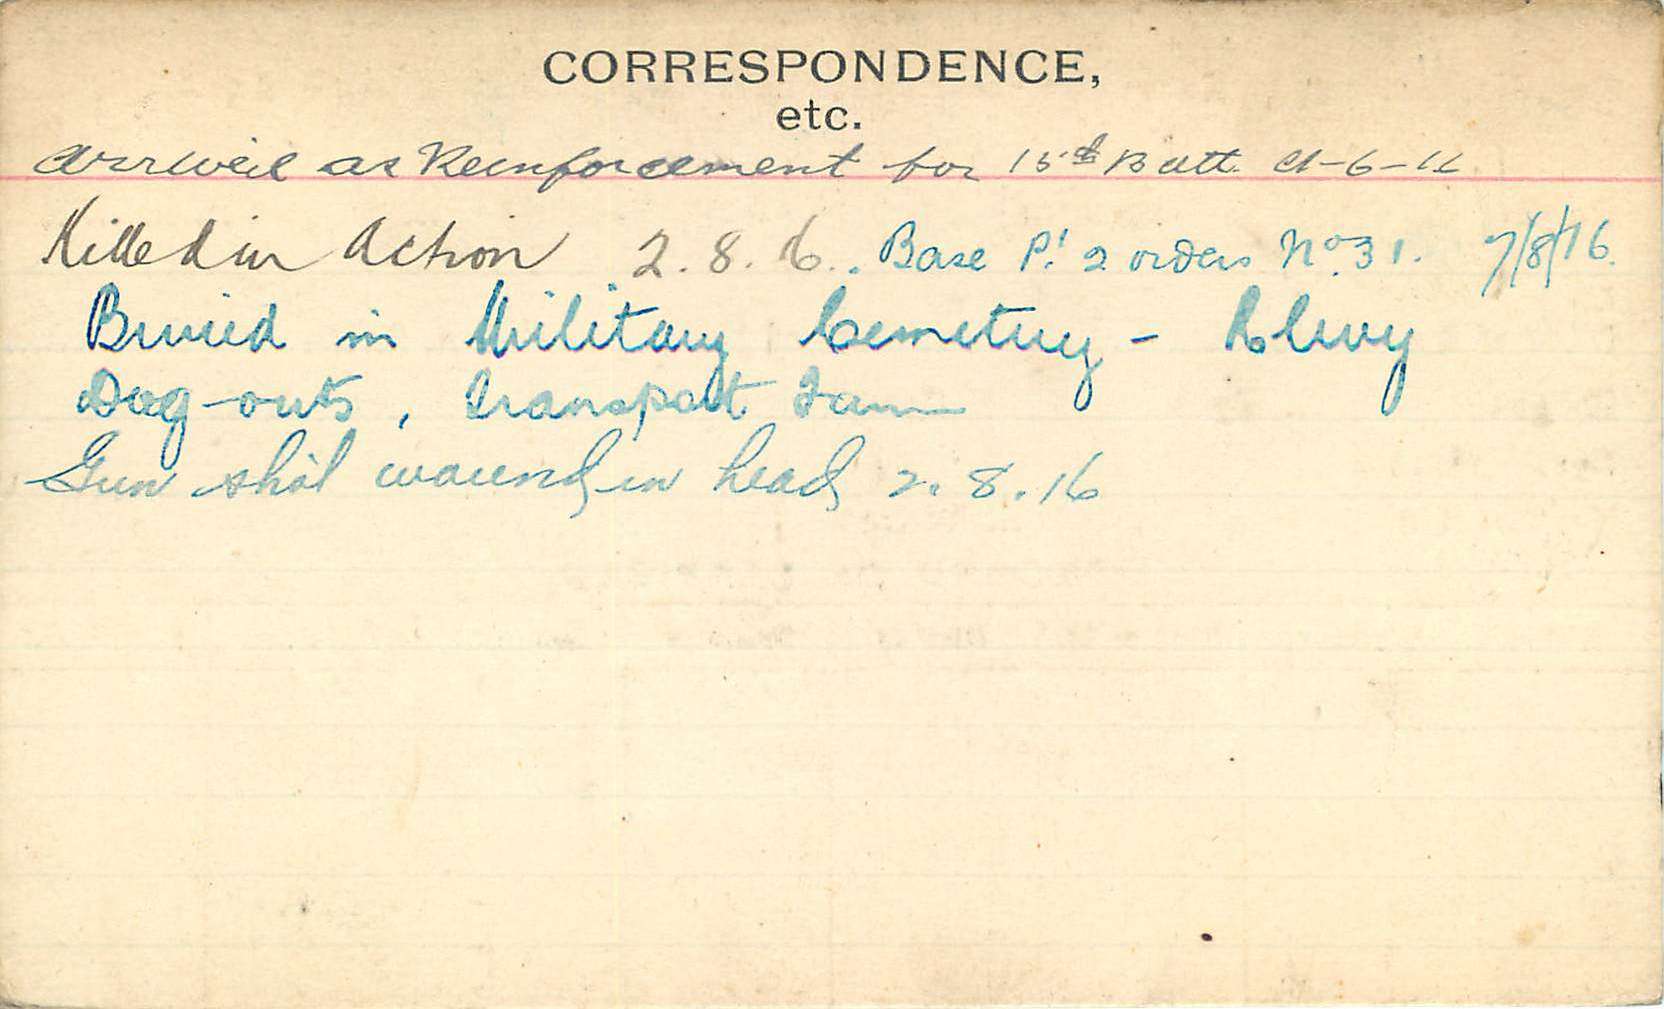 CORRESPONDENCE,
etc.
Arrived as Reinforcement for 15th Batt. 4-6-16
Killed in Action 2.8.16. Base Pt 2 orders No 31. 7/8/16.
Buried in Military Cemetery -
Dug-outs, Transport Farm
Gun shot wound in head 2.8.16